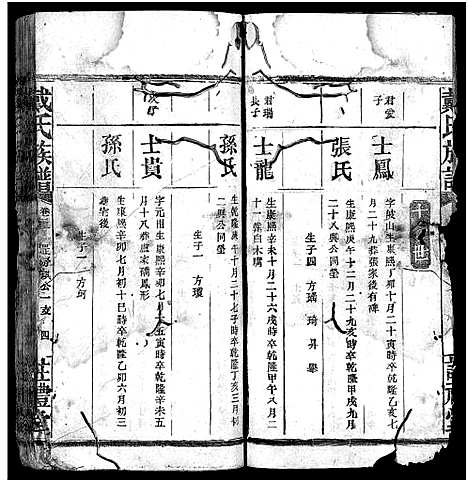 戴氏族譜
君愛
子
士鳳
字岐山生康熙丁卯十月二十寅時卒乾隆乙亥七
月二十九葬張家後有碑
張氏
生康熙庚午十二月二十九亥時卒乾隆甲戌九月
二十八與公同塋
生子四 方瑤 琦 昇 舉
君瑞
長子
士龍
生康熙辛未十月二十六戌時卒乾隆甲午八月二
十一葬白木塆
孫氏
午十月二十七子時卒乾隆丁亥三月初
二與公同塋
生子一 方瓊
次子
士貴
字元相生康熙辛卯七月十五寅時卒乾隆辛未五
月十八葬盧家
孫氏
生康熙辛卯七月初十巳時卒乾隆乙卯六月初三
葬宅後
生子一 方珂
戴氏族譜
卷
禮堂